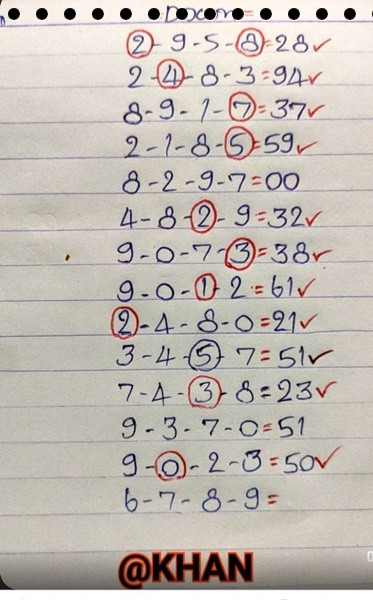 2-9-5-8=28✓
2-4-8-3=94✓
8-9-1-7=37✓
2-1-8-5=59✓
8-2-9-7=00
4-8-2-9=32✓
9-0-7-3=38✓
9-0-1-2=61✓
2-4-8-0=21✓
3-4-5-7=51✓
7-4-3-8=23✓
9-3-7-0=51
9-0-2-3=50✓
6-7-8-9=
@KHAN